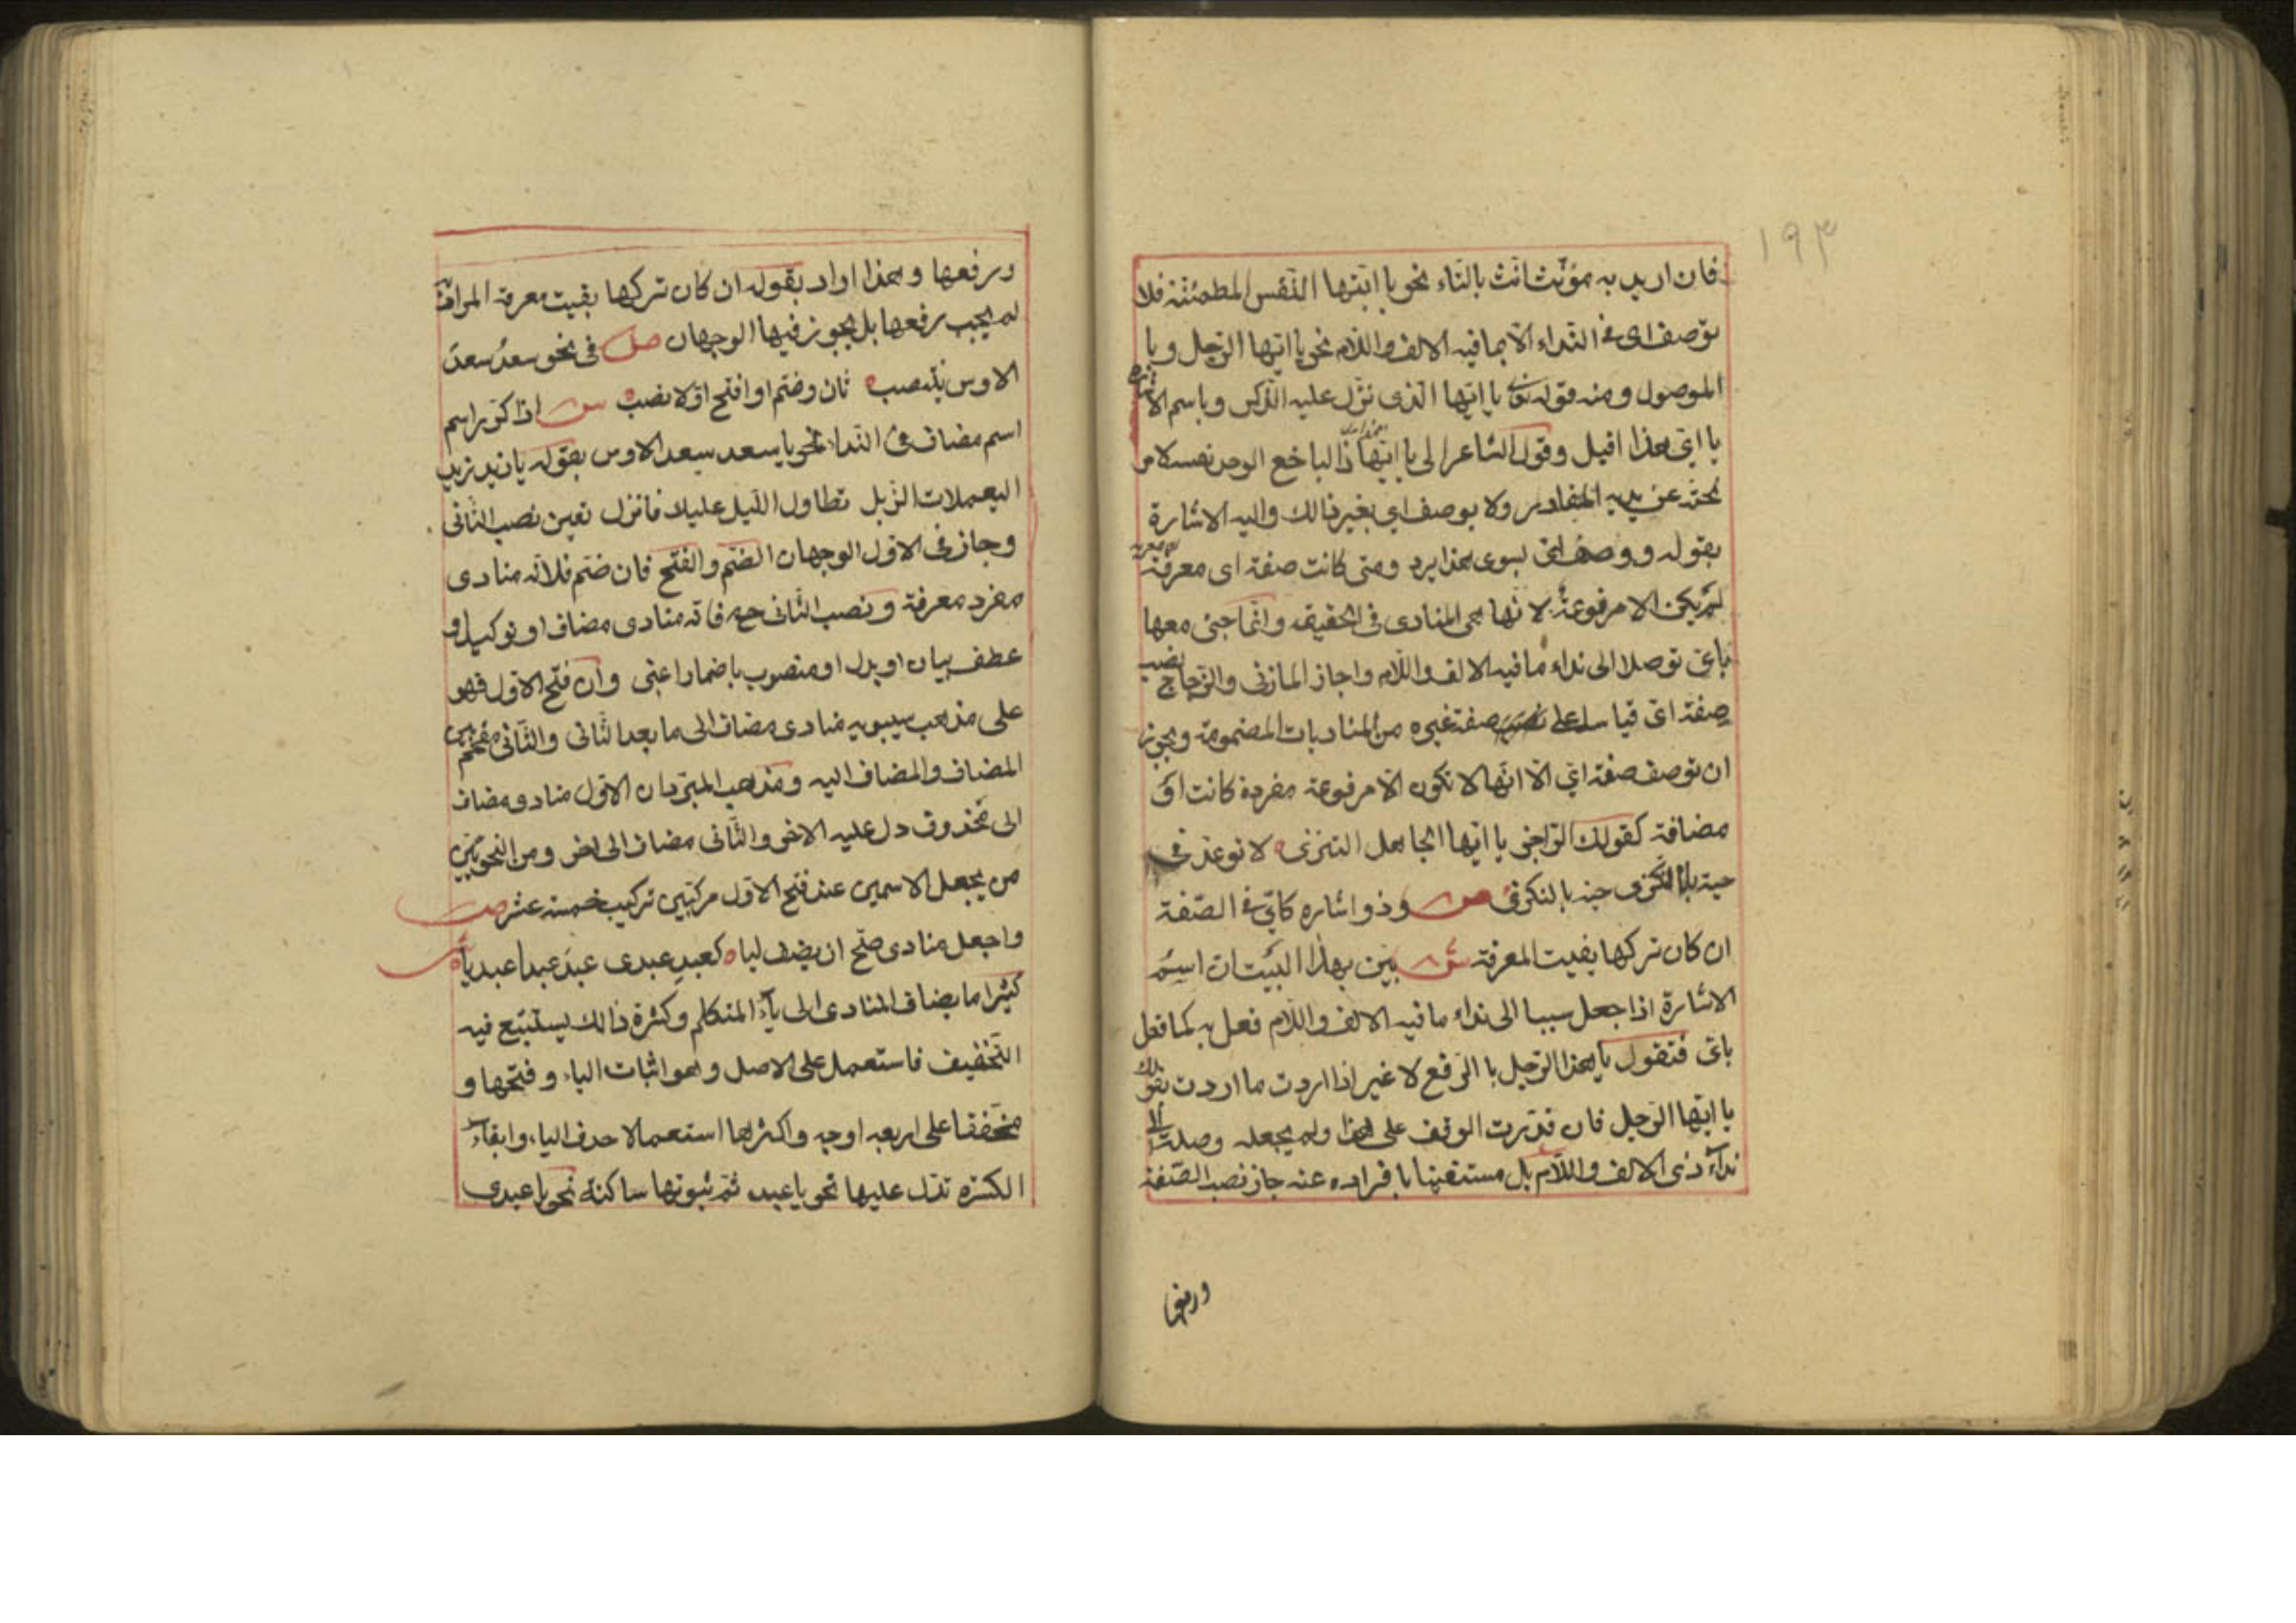 ١٩٣
فان اريد به مؤنث انث بالتاء نحو يا ايتها النفس المطمئنة فلا
توصف اى فى النداء الا بما فيه الالف واللام نحو يا ايها الرجل ويا
الموصول ومنه قوله تعالى يا ايها الذى نزل عليه الذكر وباسم الاشارة
يا اى هذا اقبل وقول الشاعر الى يا ايها ذا الباخع الوجد نفسه لامر
نحته عن يديه المقادير ولا يوصف اي بغير ذالك واليه الاشارة
بقوله ووصف اى بسوى هذا يرد ومتى كانت صفة اى معرفة
لم يكن الا مرفوعة لانها هى المنادى فى الحقيقه وانما جئ معها
باى توصلا الى نداء ما فيه الالف واللام واجاز المازنى والزجاج نصب
صفة اى قياسا على صفة غيره من المناديات المضمومة ويجوز
ان توصف صفة اي الا انها لا تكون الا مرفوعة مفردة كانت او
مضافة كقولك الراجز يا ايها الجاهل التنزى لا توعدنى
حية بالنكزى ص وذو اشاره كاي فى الصفة
ان كان تركها يفيت المعرفة ش بين بهذا البيت ان اسم
الاشارة اذا جعل سببا الى نداء ما فيه الالف واللام فعل به كما فعل
باى فتقول يا هذا الرجل با الرفع لا غير اذا اردت ما اردت بقولك
يا ايها الرجل فان قدرت الوقف على هذا ولم يجعله وصلة الى
نداء ذى الالف واللام بل مستغنيا با فراده عنه جاز نصب الصفة
ورفعها
ورفعها وهذا اراد بقوله ان كان تركها يفيت معرفة المراد
لم يجب رفعها بل يجوز فيها الوجهان ص فى نحو سعد سعد
الاوس ينتصب ثان وضم او افتح اولا تصب ش اذا كرر اسم
اسم مضاف فى النداء نحو يا سعد سعد الاوس بقوله يا زيد زيد
اليعملات الذبل تطاول الليل عليك فانزل تعين نصب الثانى
وجاز فى الاول الوجهان الضم والفتح فان ضم فلانه منادى
مفرد معرفة ونصب الثانى ح فانه منادى مضاف او توكيد او
عطف بيان او بدل او منصوب باضمار اعنى وان فتح الاول فهو
على مذهب سيبويه منادى مضاف الى ما بعد الثانى والثانى مقحم بين
المضاف والمضاف اليه ومذهب المبرد ان الاول منادى مضاف
الى محذوف دل عليه الاخر والثانى مضاف الى اخر ومن النحويين
من يجعل الاسمين عند فتح الاول مركبين تركيب خمسة عشر ص
واجعل منادى صح ان يضف ليا كعبد عبدى عبد عبدا عبديا ش
كثيرا ما يضاف المنادى الى ياء المتكلم وكثرة ذالك يستتبع فيه
التخفيف فاستعمل على الاصل وهو اثبات الياء وفتحها و
مخففا على اربعه اوجه واكثرها استعمالا حذف الياء وابقاء
الكسره تدل عليها نحو يا عبد ثم ثبوتها ساكنة نحو يا عبدى